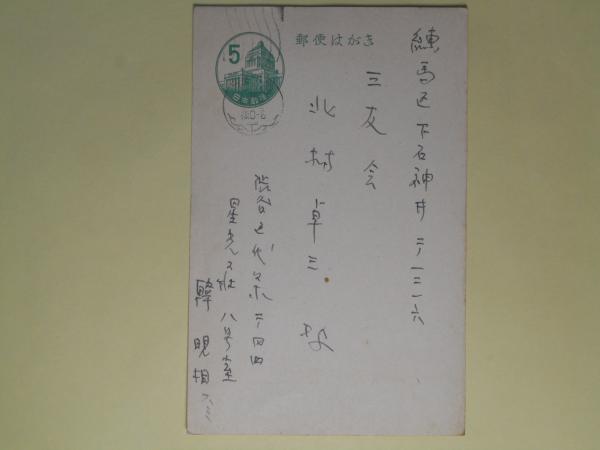 郵便はがき
5
日本郵便
練馬区下石神井二ノ一三一六
三友会
北村卓三 様
渋谷区代々木二ノ四四
星光荘 八号室
韓晛相